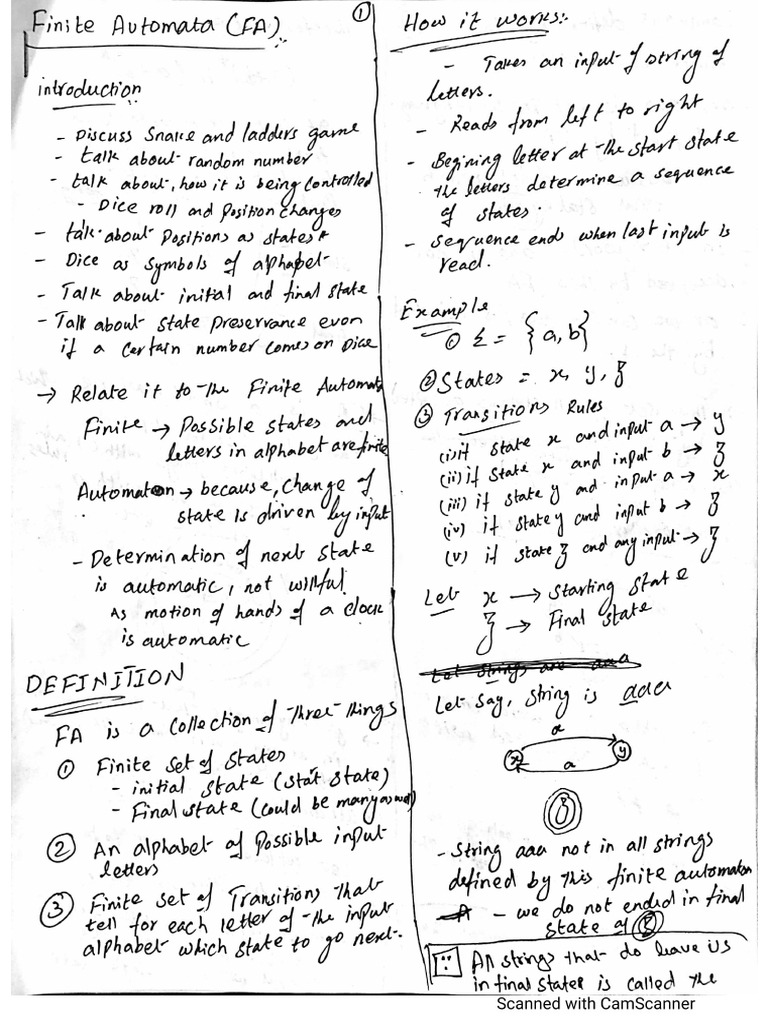 Finite Automata (FA) :-
①
introduction
- Discuss Snake and ladders game
- talk about random number
- talk about, how it is being controlled
- Dice roll and position changes
- talk about positions as states
- Dice as symbols of alphabet
- Talk about initial and final state
- Talk about state preservance even
if a certain number comes on Dice
→ Relate it to the Finite Automata
Finite → Possible states and
letters in alphabet are finite
Automaton → because, change of
state is driven by input
- Determination of next state
is automatic, not willful
As motion of hands of a clock
is automatic
DEFINITION
FA is a collection of three things
① Finite set of states
- initial state (start state)
- Final state (could be many as well)
② An alphabet of possible input
letters
③ Finite set of Transitions that
tell for each letter of the input
alphabet which state to go next.
How it works:-
- Takes an input of string of
letters.
- Reads from left to right
- Begining letter at the start state
the letters determine a sequence
of states.
- Sequence ends when last input is
read.
Example
① Σ = {a, b}
② States = x, y, z
③ Transitions Rules
(i) if state x and input a → y
(ii) if state x and input b → z
(iii) if state y and input a → x
(iv) if state y and input b → z
(v) if state z and any input → z
Let x → starting state
z → Final state
Let strings are aaa
Let say, string is aaa
a
x y
a
z
- String aaa not in all strings
defined by this finite automaton
- we do not ended in final
state of z
All strings that do leave us
in final states is called the
Scanned with CamScanner